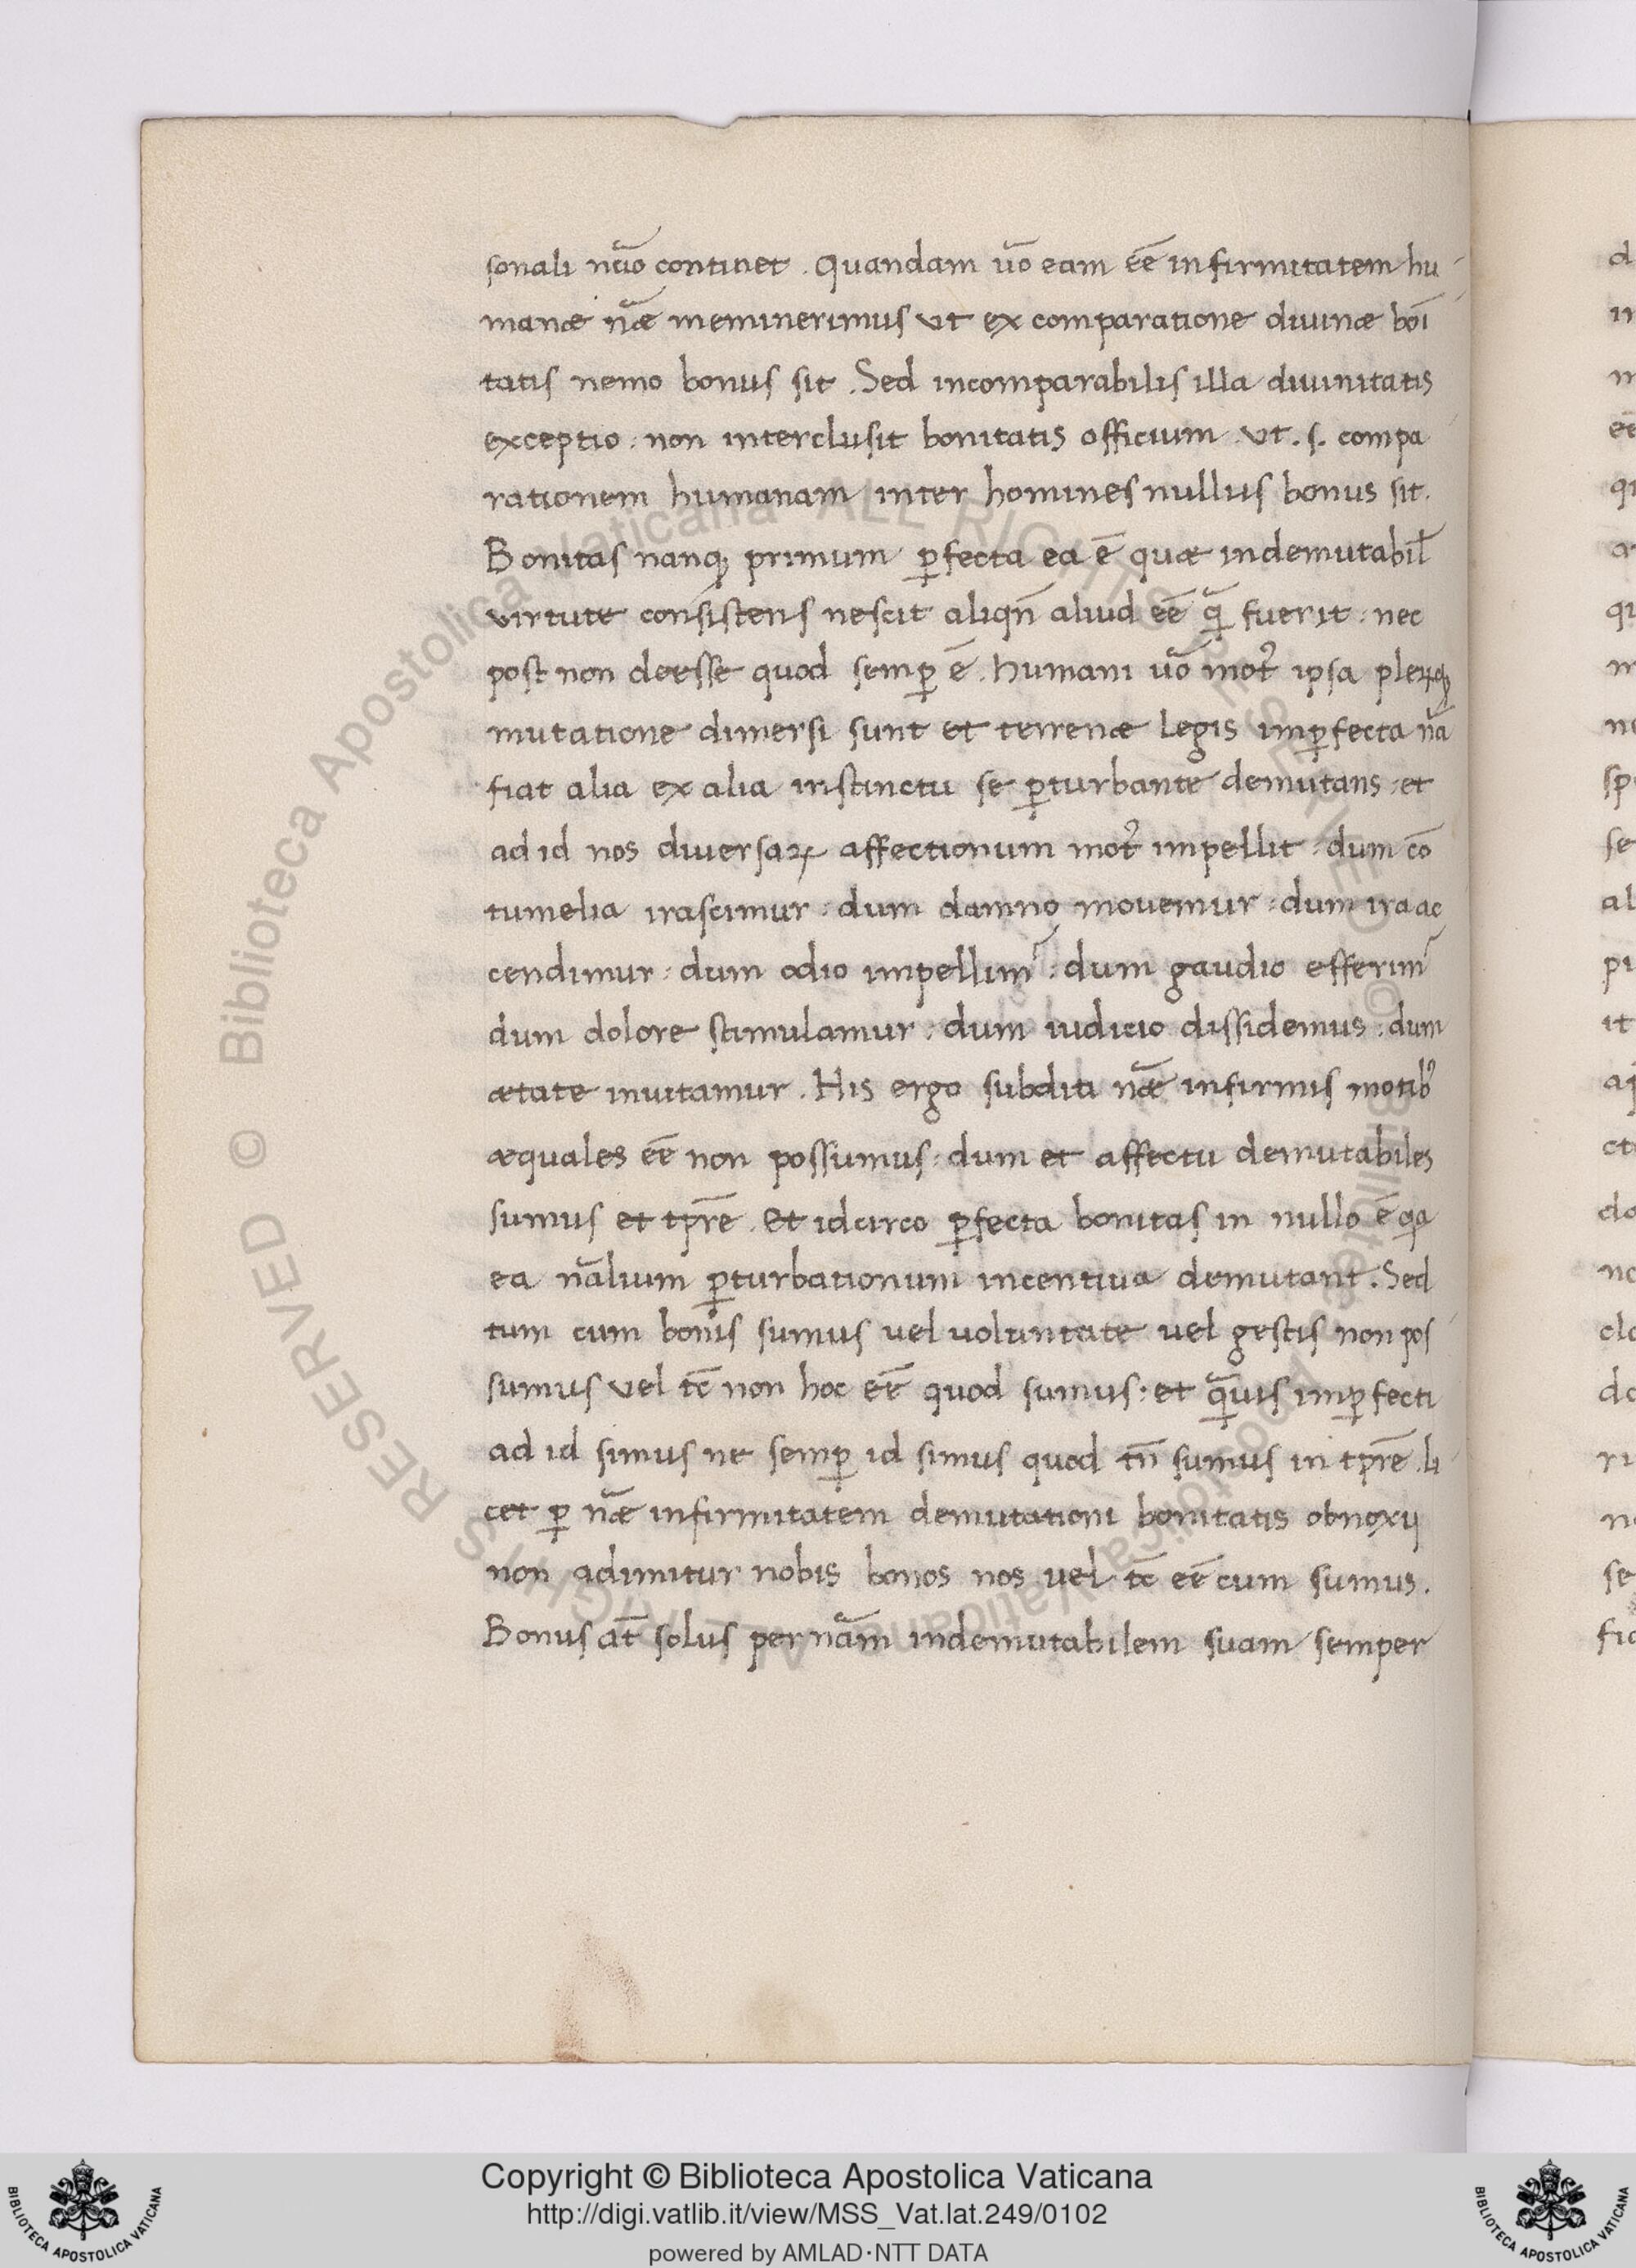 sonali nc̃io continet . Quandam ũo eam eē̄ infirmitatem hu
manæ nãe meminerimus ut ex comparatione diuinæ boī
tatis nemo bonus sit . Sed incomparabilis illa diuinitatis
exceptio : non interclusit bonitatis officium . ut . s . compa
rationem humanam inter homines nullus bonus sit .
Bonitas nanqꝫ primum ꝑfecta ea ē quæ indemutabil̃
virtute consistens nescit aliqñ aliud eē̄ q̃ꝫ fuerit : nec
post non deesse quod semꝑ ē . humani ũo motꝰ ipsa pleꝝqꝫ
mutatione diuersi sunt et terrenæ legis imꝑfecta nã
fiat alia ex alia instinctu se ꝑturbante demutans : et
ad id nos diuersaꝝ affectionum motꝰ impellit : dum cō
tumelia irascimur : dum damno mouemur : dum ira ac
cendimur : dum odio impellim᷑ : dum gaudio efferim᷑
dum dolore stimulamur : dum iudicio dissidemus : dum
ætate inuitamur . His ergo subditi nãe infirmis motibꝰ
æquales eē̄ non possumus : dum et affectu demutabiles
sumus et tpr̄e . Et idcirco ꝑfecta bonitas in nullo ē qa
ea nãlium ꝑturbationum incentiua demutant . Sed
tum cum bonis sumus vel voluntate vel gestis non pos
sumus vel tc̄ non hoc eē̄ quod sumus : et q̃ꝫuis imꝑfecti
ad id simus ne semꝑ id simus quod tñ sumus in tpr̄e . li
cet ꝑ nãe infirmitatem demutationi bonitatis obnoxij
non adimitur nobis bonos nos vel tc̄ eē̄ cum sumus .
Bonus at̄ solus per nãm indemutabilem suam semper
Copyright © Biblioteca Apostolica Vaticana
http://digi.vatlib.it/view/MSS_Vat.lat.249/0102
powered by AMLAD·NTT DATA